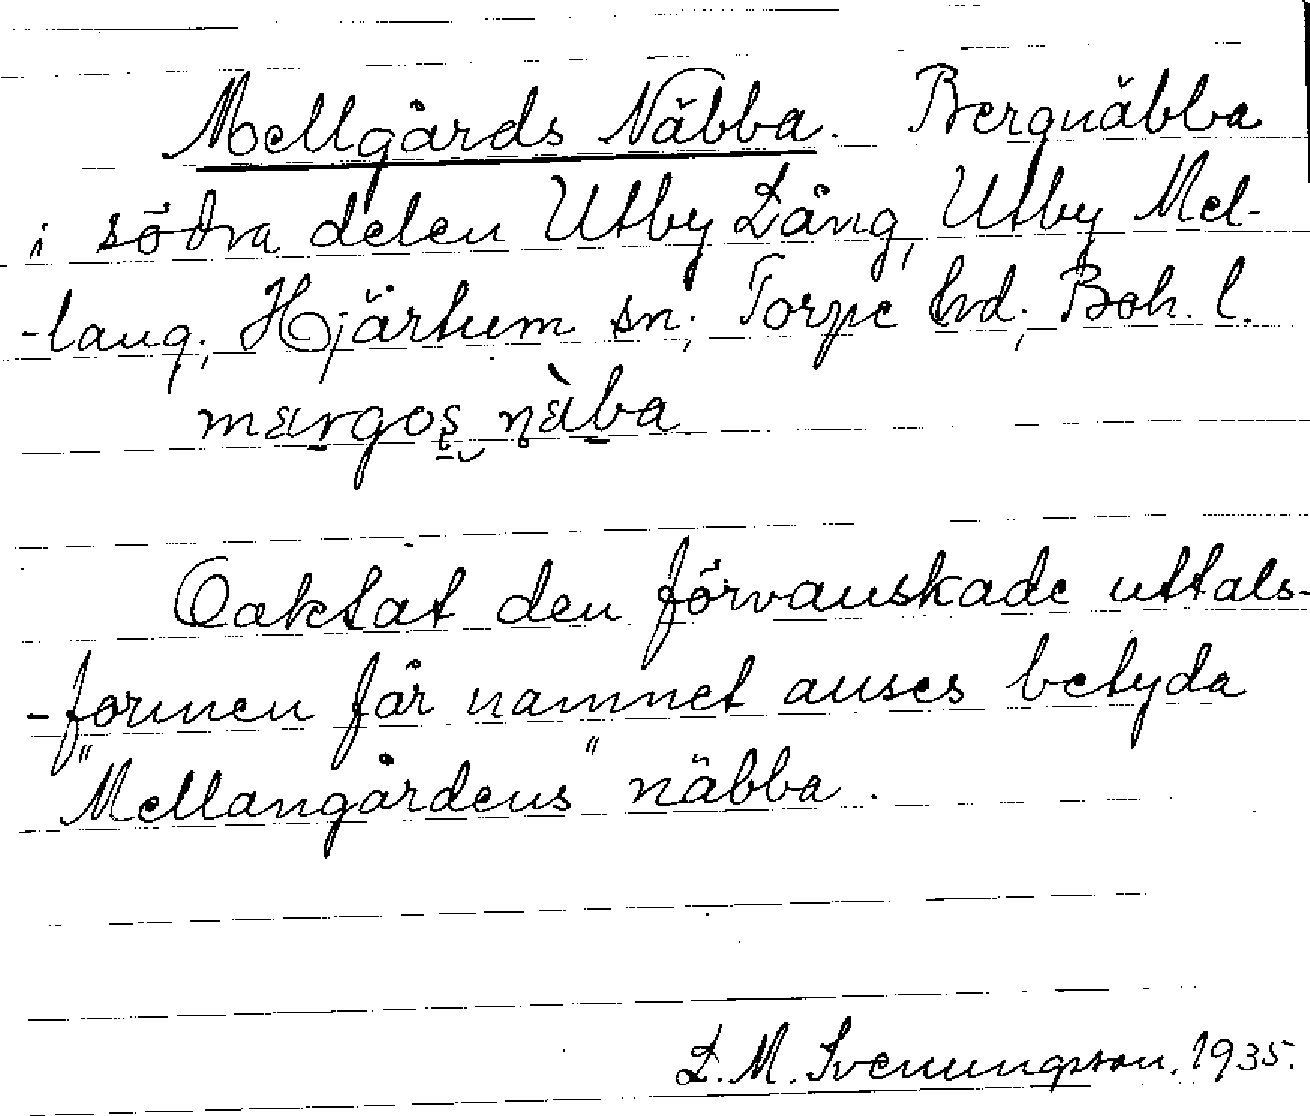 Mellgårds Näbba. Bergnäbba
i södra delen Utby Lång, Utby Mel-
-lang; Hjärtum sn; Torpe hd; Boh. l.
margos näba
Oaktat den förvanskade uttals-
-formen får namnet anses betyda
"Mellangårdens" näbba.
L. M. Svenungsson. 1935.